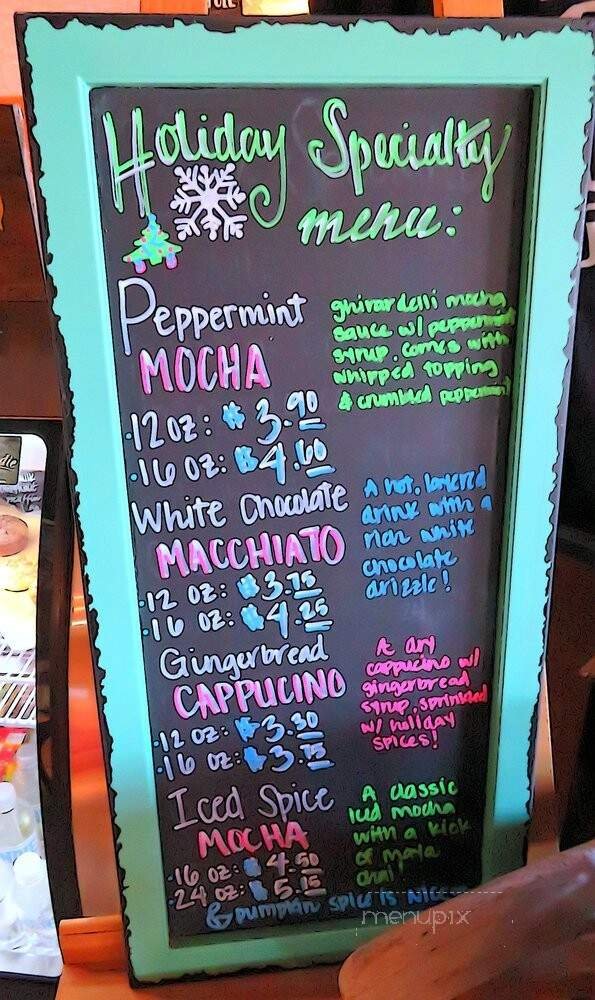 Holiday Specialty
menu:
Peppermint
MOCHA
.12oz: $3.90
.16 oz: $4.60
ghirardelli mocha
sauce w/ peppermint
syrup. Comes with
whipped topping
& crumbled peppermint
White Chocolate
MACCHIATO
.12 oz: $3.75
.16 oz: $4.25
A hot, layered
drink with a
rich white
chocolate
drizzle!
Gingerbread
CAPPUCINO
.12 oz: $3.30
.16 oz: $3.75
A dry
cappucino w/
gingerbread
syrup, sprinkled
w/ holiday
spices!
Iced Spice
MOCHA
.16 oz: $4.50
.24 oz: $5.15
A classic
iced mocha
with a kick
of
& pumpkin spice is
menupix